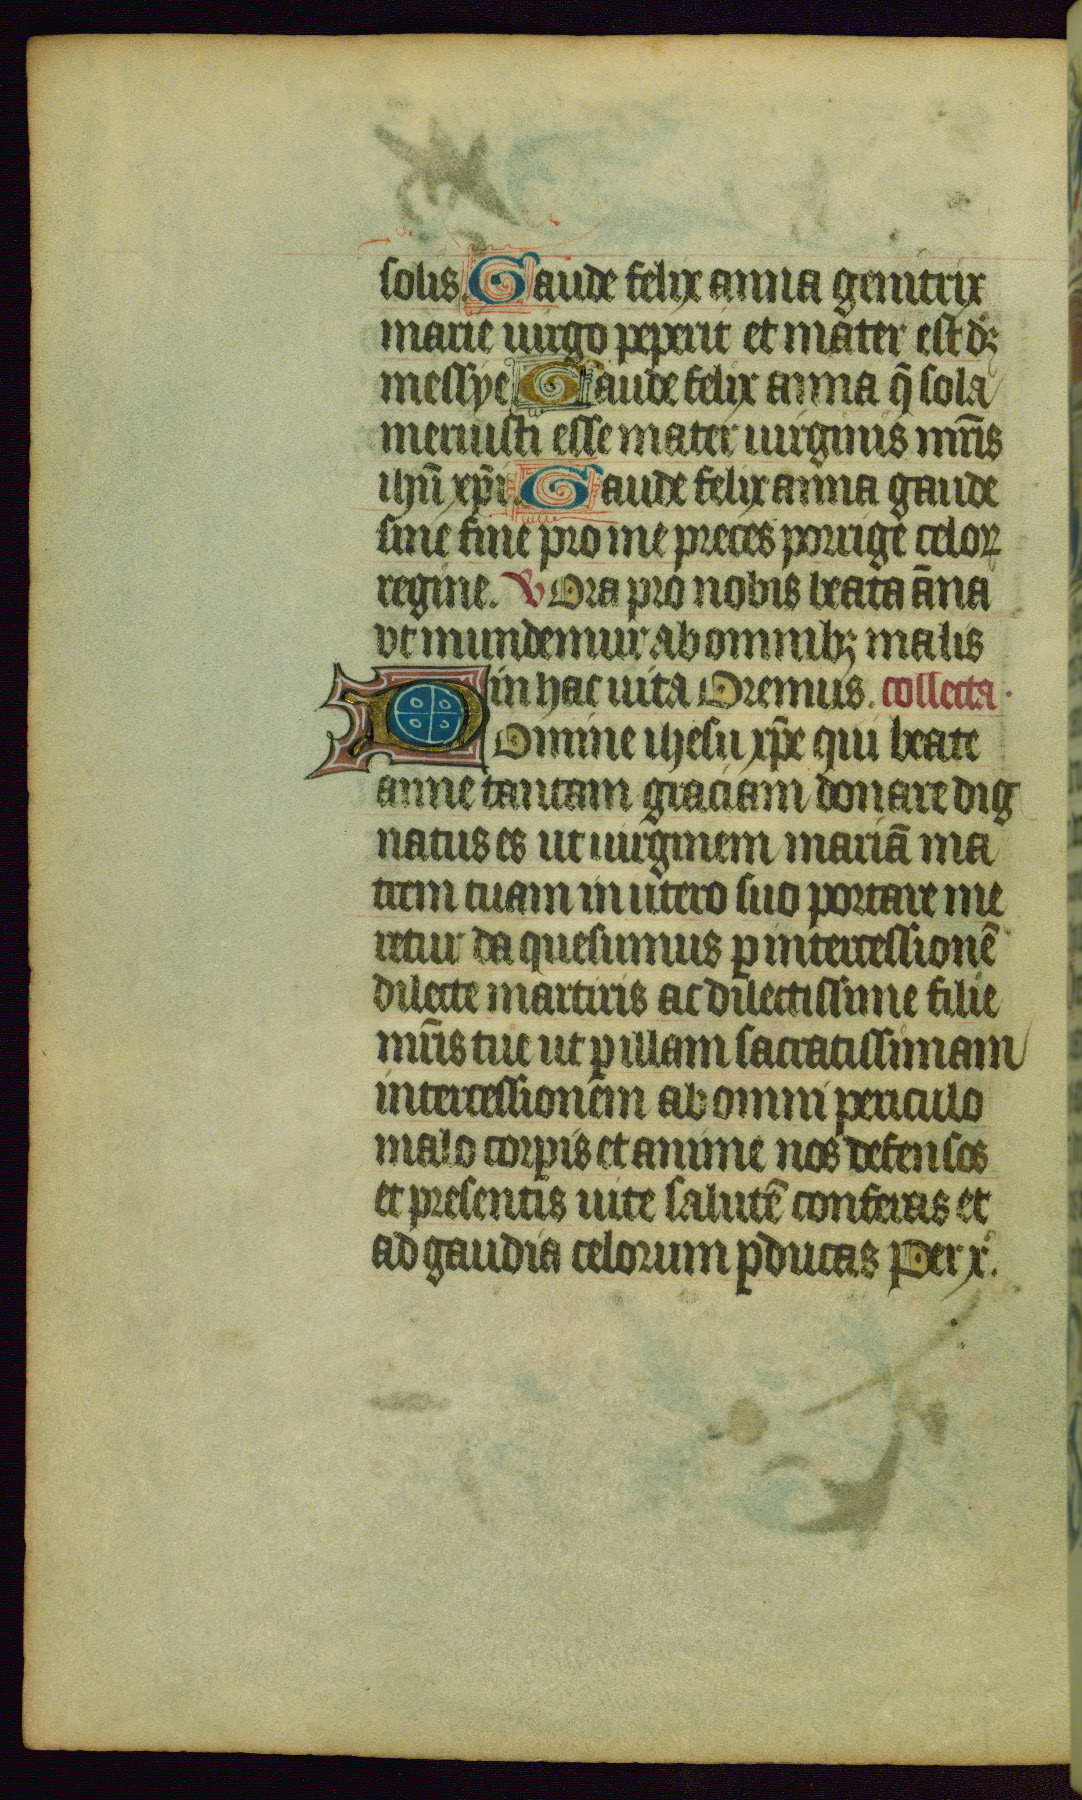 solis. Gaude felix anna genitrix
marie uirgo peperit et mater est dꝫ
messye Gaude felix anna q̄ sola
meruisti esse mater uirginis mr̄is
ihū xp̄i. Gaude felix anna gaude
sine fine pro me preces porrige celoꝝ
regine. V Ora pro nobis beata āna
vt mundemur ab omnibꝫ malis
in hac uita Oremus. collecta.
Domine ihesu xp̄e qui beate
anne tantam graciam donare dig
natus es ut uirginem mariā ma
trem tuam in utero suo portare me
retur da quesumus ꝑ intercessionē
dilecte martiris ac dilectissime filie
mr̄is tue ut ꝑ illam sacratissimam
intercessionem ab omni periculo
malo corꝑis et anime nos defensos
et presentis uite salutē conferas et
ad gaudia celorum ꝑducas Per x.